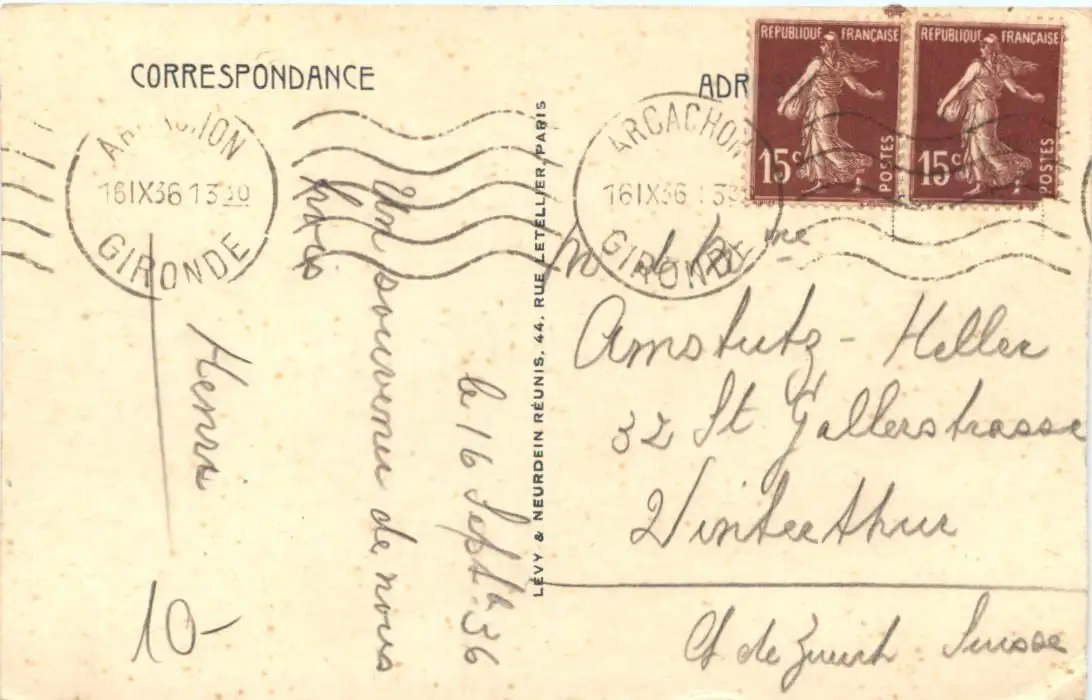 CORRESPONDANCE
ARCACHON
16 IX 36 13 30
GIRONDE
le 16 Sept 36
Un souvenir de nous
trois
Henri
10-
LÉVY & NEURDEIN RÉUNIS, 44, RUE LETELLIER, PARIS
ADR
REPUBLIQUE FRANÇAISE
15c
POSTES
REPUBLIQUE FRANÇAISE
15c
POSTES
ARCACHON
16 IX 36 13 30
GIRONDE
M et Mme
Amstutz - Heller
32 St Gallerstrasse
Winterthur
Ct de Zurich Suisse